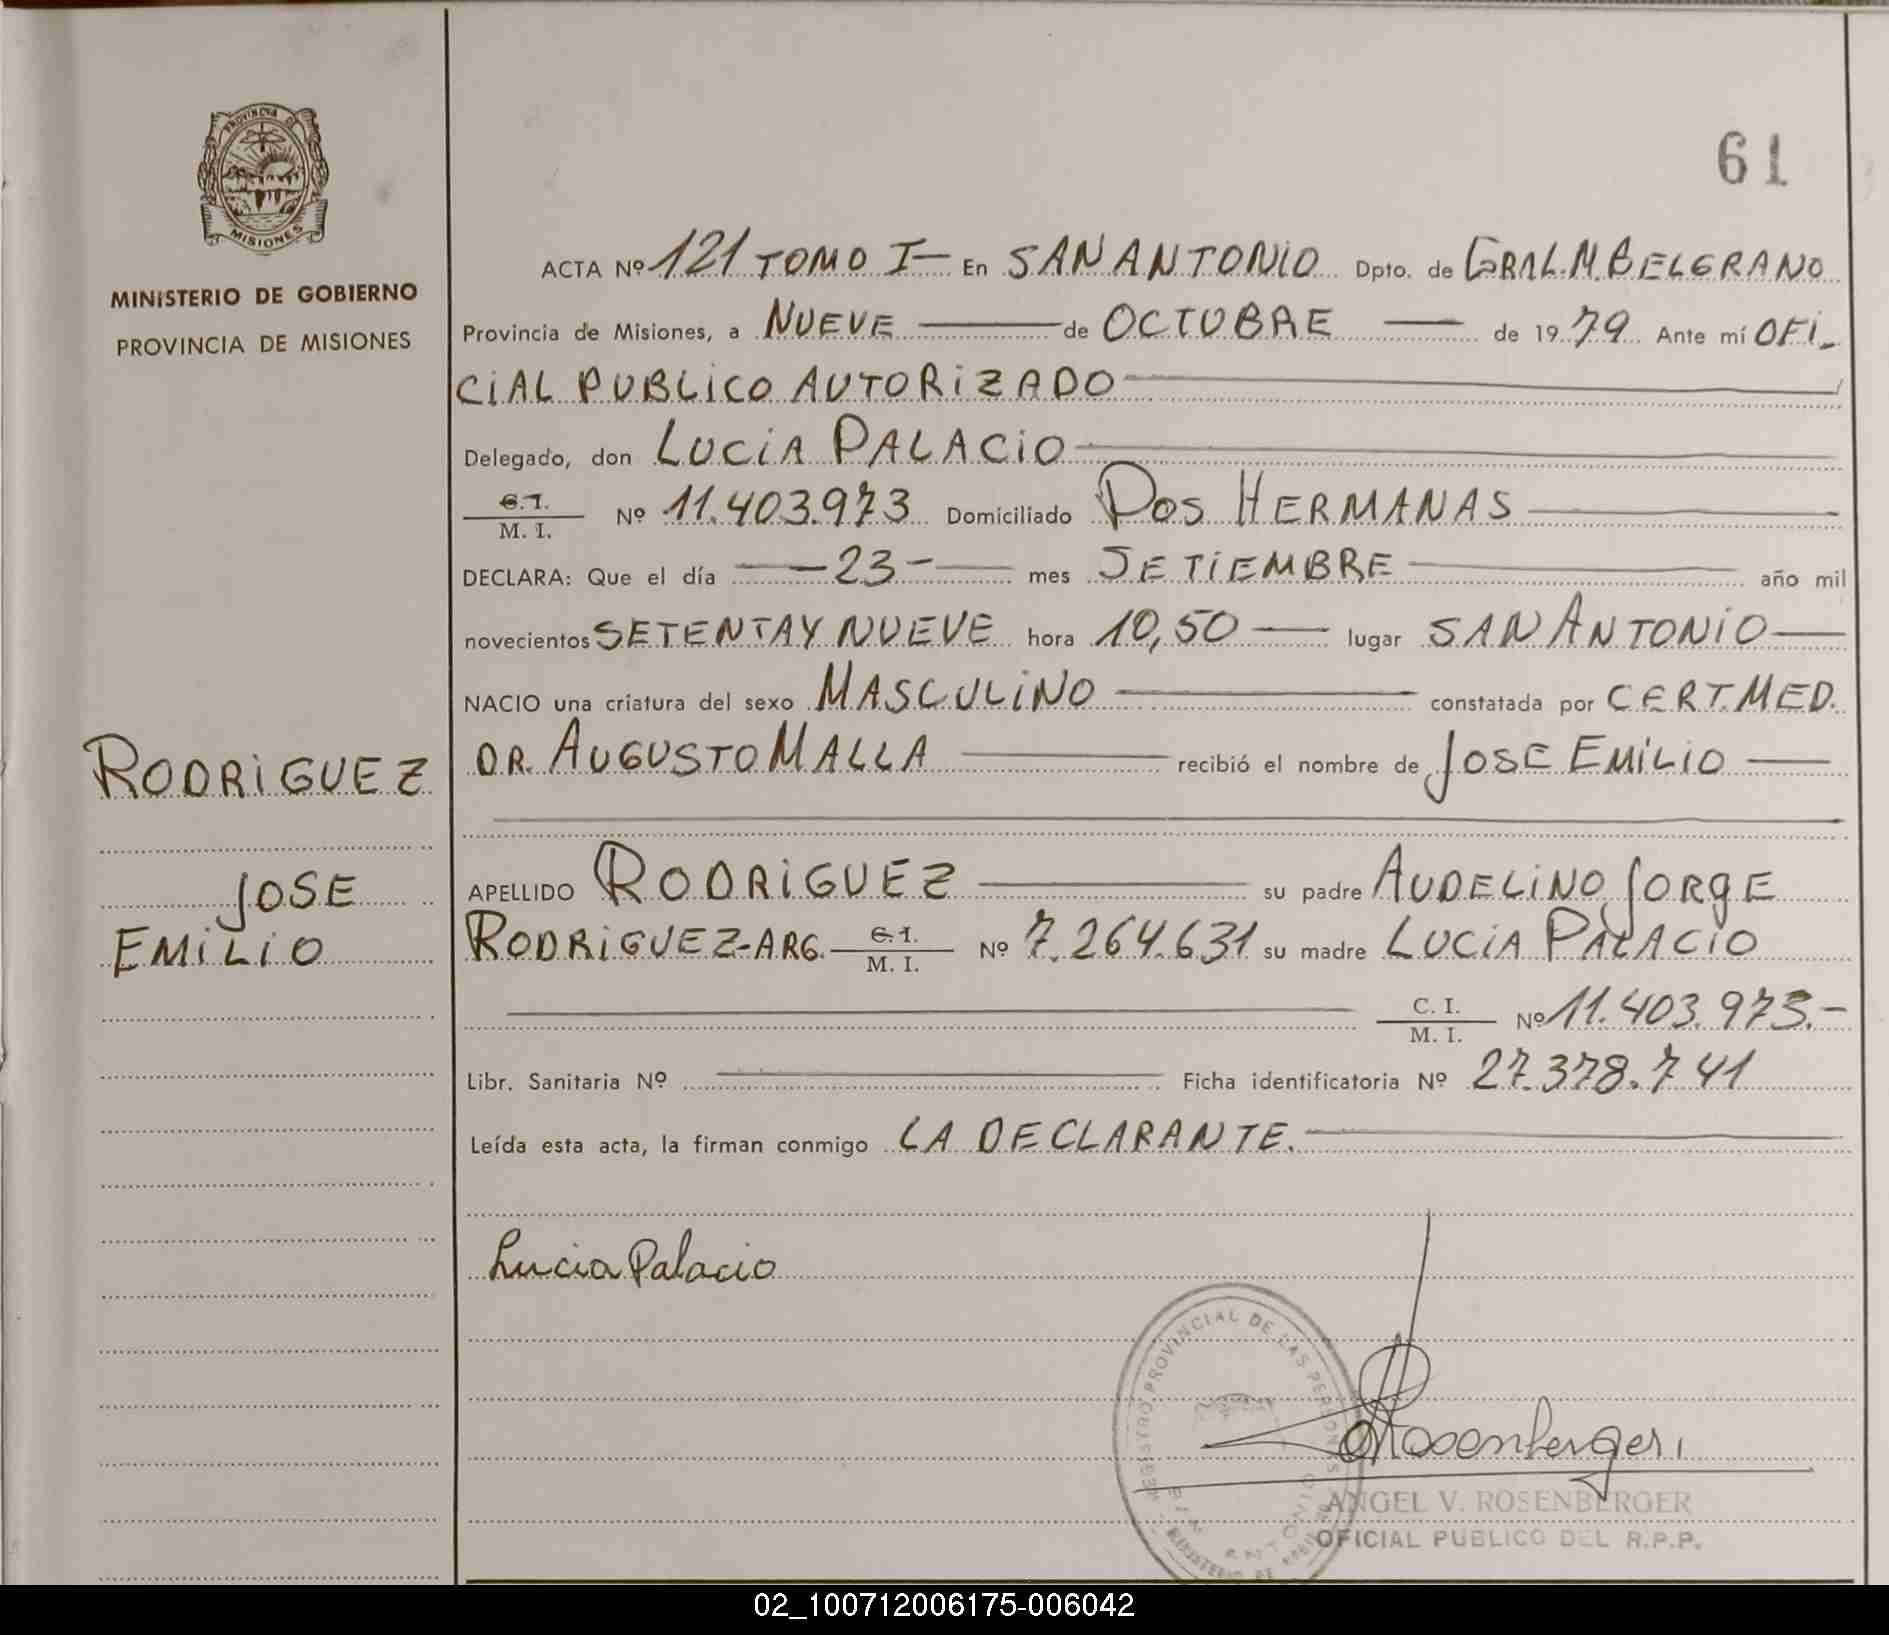 PROVINCIA DE
MISIONES
MINISTERIO DE GOBIERNO
PROVINCIA DE MISIONES
RODRIGUEZ
JOSE
EMILIO
61
ACTA Nº 121 TOMO I - En SAN ANTONIO Dpto. de GRAL. M. BELGRANO
Provincia de Misiones, a NUEVE de OCTUBRE de 1979 Ante mí OFI-
CIAL PUBLICO AUTORIZADO
Delegado, don LUCIA PALACIO
C.I. / M.I. Nº 11.403.973 Domiciliado DOS HERMANAS
DECLARA: Que el día -23- mes SETIEMBRE año mil
novecientos SETENTA Y NUEVE hora 10,50 lugar SAN ANTONIO
NACIO una criatura del sexo MASCULINO constatada por CERT. MED.
DR. AUGUSTO MALLA recibió el nombre de JOSE EMILIO
APELLIDO RODRIGUEZ su padre AUDELINO JORGE
RODRIGUEZ-ARG. C.I. / M.I. Nº 7.264.631 su madre LUCIA PALACIO
C.I. / M.I. Nº 11.403.973.-
Libr. Sanitaria Nº Ficha identificatoria Nº 27.378.741
Leída esta acta, la firman conmigo LA DECLARANTE.
Lucia Palacio
REGISTRO PROVINCIAL DE LAS PERSONAS
MINISTERIO DE
Rosenberger
ANGEL V. ROSENBERGER
OFICIAL PUBLICO DEL R.P.P.
02_100712006175-006042